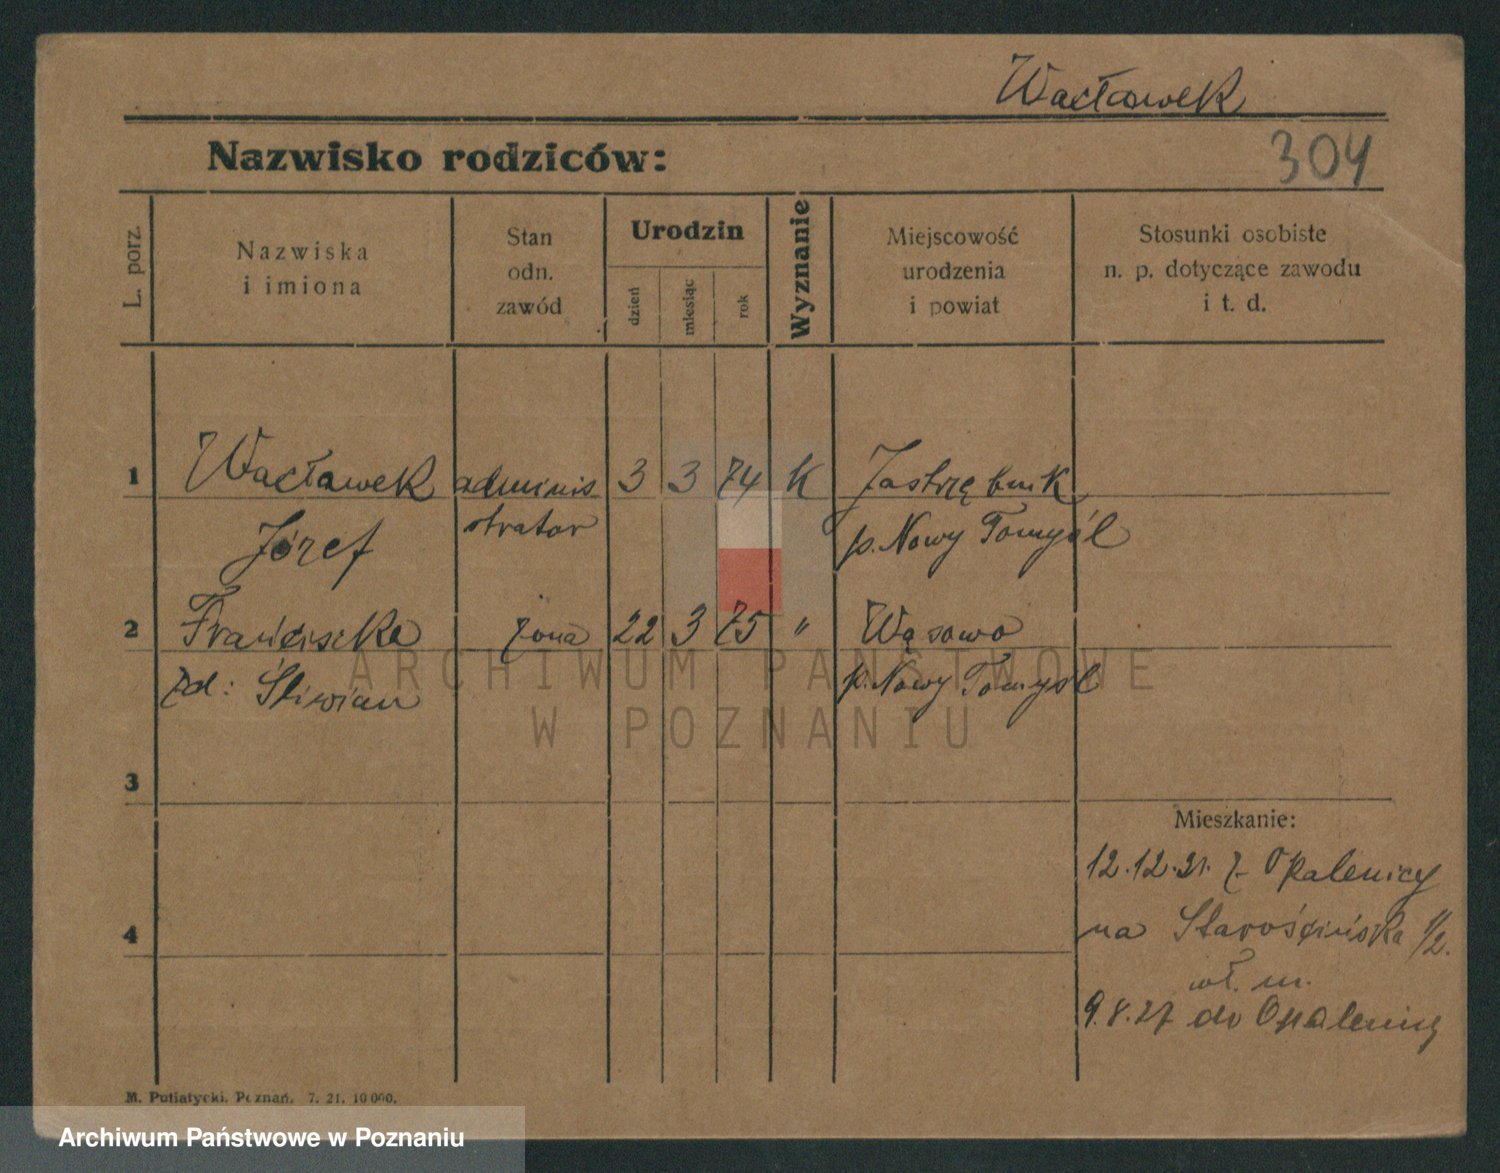 Wacławek
Nazwisko rodziców:
304
L. porz.
Nazwiska
i imiona
Stan
odn.
zawód
Urodzin
dzień
miesiąc
rok
Wyznanie
Miejscowość
urodzenia
i powiat
Stosunki osobiste
n. p. dotyczące zawodu
i t. d.
1 Wacławek adminis 3 3 74 K Jastrzębnik
Józef strator p. Nowy Tomyśl
2 Franciszka żona 22 3 75 " Wąsowo
zd: Śliwian p. Nowy Tomyśl
ARCHIWUM PAŃSTWOWE
W POZNANIU
3
Mieszkanie:
12.12.21. z Opalenicy
4
na Starościńska 1/2.
wł. m.
9.8.27 do Opalenicy
M. Putiatycki. Poznań. 7. 21. 10 000.
Archiwum Państwowe w Poznaniu